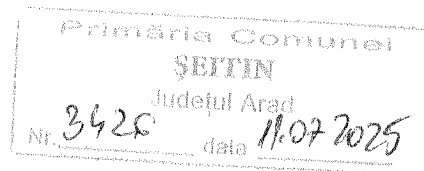 Primăria Comunei
ŞEITIN
Judeţul Arad
Nr. 3426 data 11.07 2025